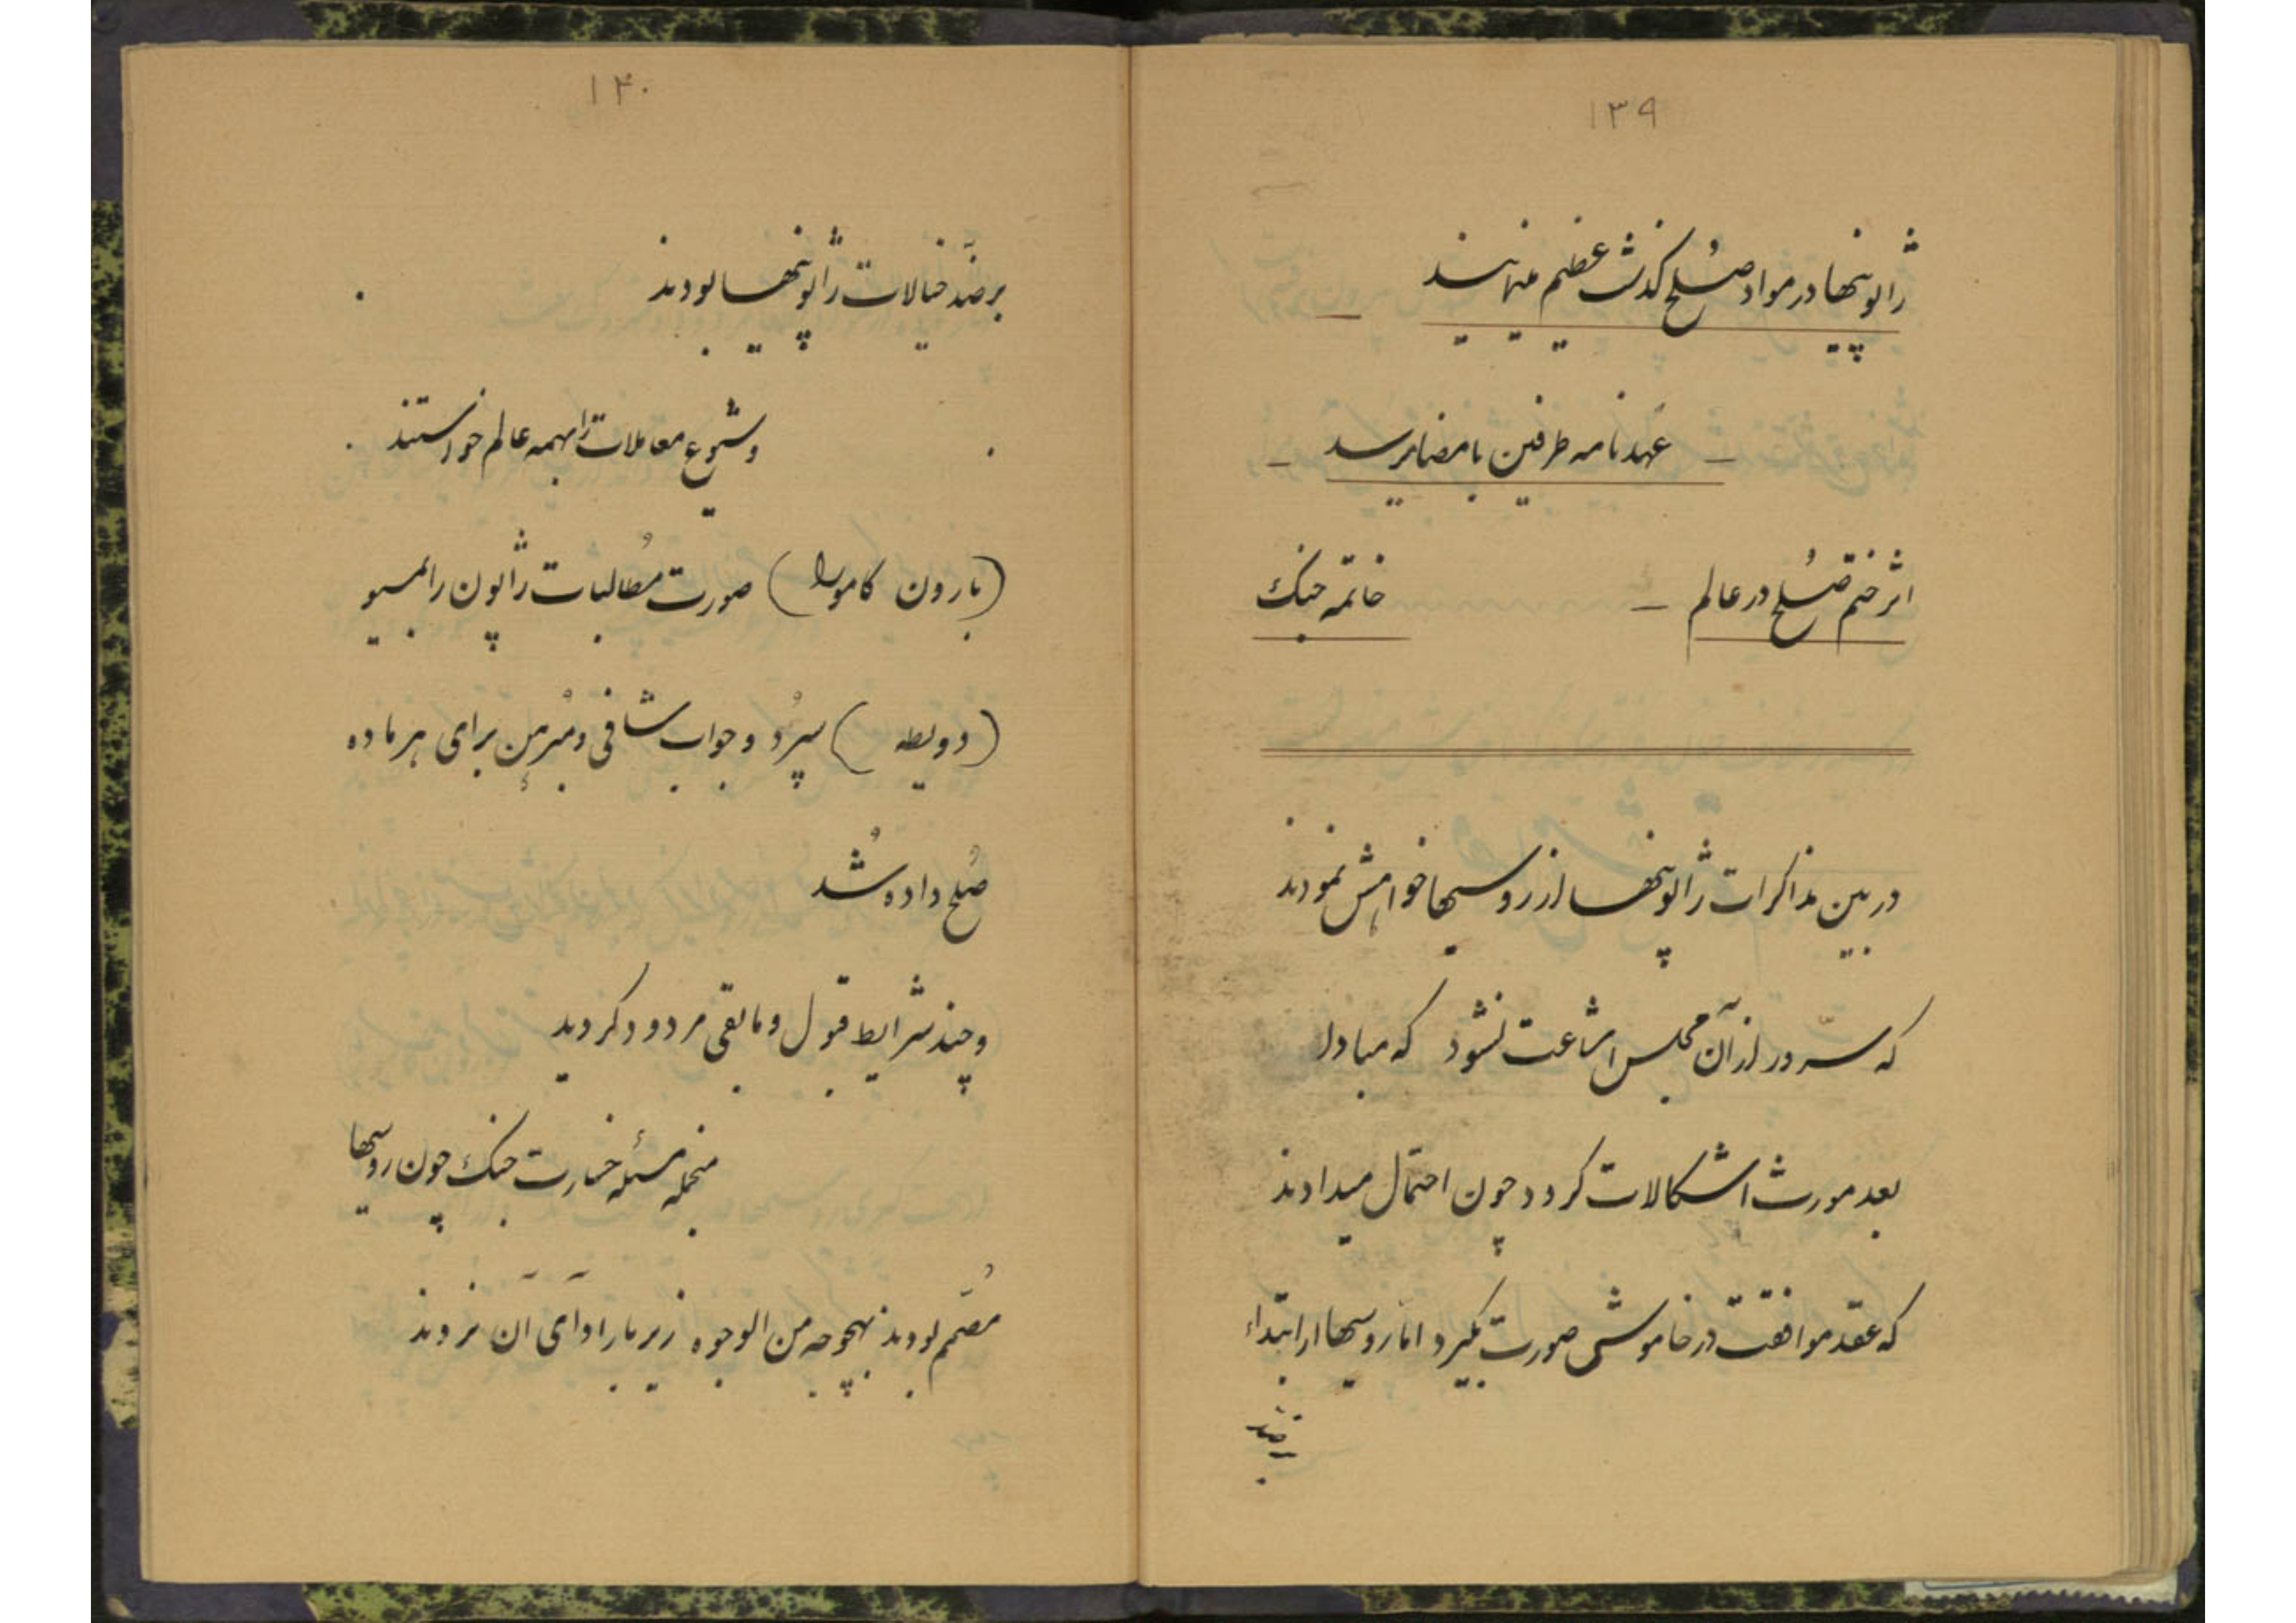 ۱۳۹
ژاپونیها در مواد صُلح گذشت عظیم مینمایند
– عهدنامه طرفین بامضا میرسد –
اثر ختم صُلح در عالم – خاتمه جنک
در بین مذاکرات ژاپونیها از روسیها خواهش نمودند
که سرور از آن مجلس اشاعت نشود که مبادا
بعد مورث اشکالات کردد چون احتمال میدادند
که عقد موافقت در خاموشی صورت بگیرد امّا روسیها از ابتداء
برضد
۱۴۰
برضدّ خیالات ژاپونیها بودند
و شیوع معاملات را بهمه عالم خواستند
(بارون کامورا) صورت مُطالبات ژاپون را بمسیو
(دویطه) سپرُد و جواب شافی و مُبرهن برای هر ماده
صُلح داده شُد
و چند شرایط قبول و مابقی مردود کردید
منجمله مسئله خسارت جنک چون روسیها
مُصمّم بودند بهیچوجه من الوجوه زیر بار ادآی آن نروند